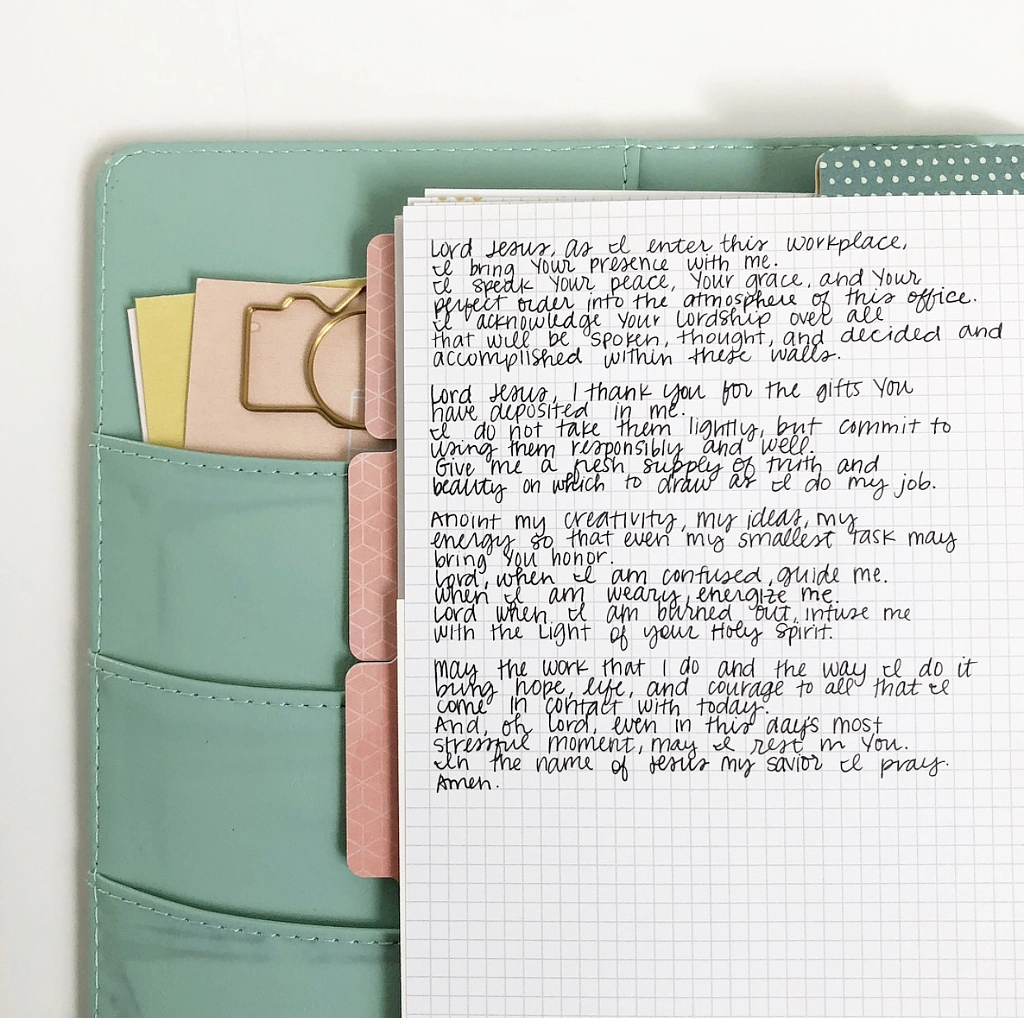 Lord Jesus, as I enter this workplace,
I bring your presence with me.
I speak your peace, your grace, and your
perfect order into the atmosphere of this office.
I acknowledge your Lordship over all
that will be spoken, thought, and decided and
accomplished within these walls.
Lord Jesus, I thank you for the gifts you
have deposited in me.
I do not take them lightly, but commit to
using them responsibly and well.
Give me a fresh supply of truth and
beauty on which to draw as I do my job.
Anoint my creativity, my ideas, my
energy so that even my smallest task may
bring you honor.
Lord, when I am confused, guide me.
When I am weary, energize me.
Lord when I am burned out, infuse me
with the Light of your Holy Spirit.
May the work that I do and the way I do it
bring hope, life, and courage to all that I
come in contact with today.
And, oh Lord, even in this day's most
stressful moment, may I rest in You.
In the name of Jesus my savior I pray.
Amen.